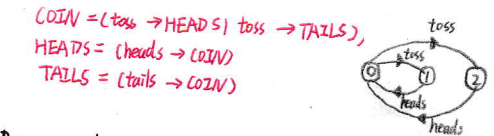 COIN = (toss → HEADS | toss → TAILS),
HEADS = (heads → COIN)
TAILS = (tails → COIN)
toss
toss
0
1
2
heads
heads